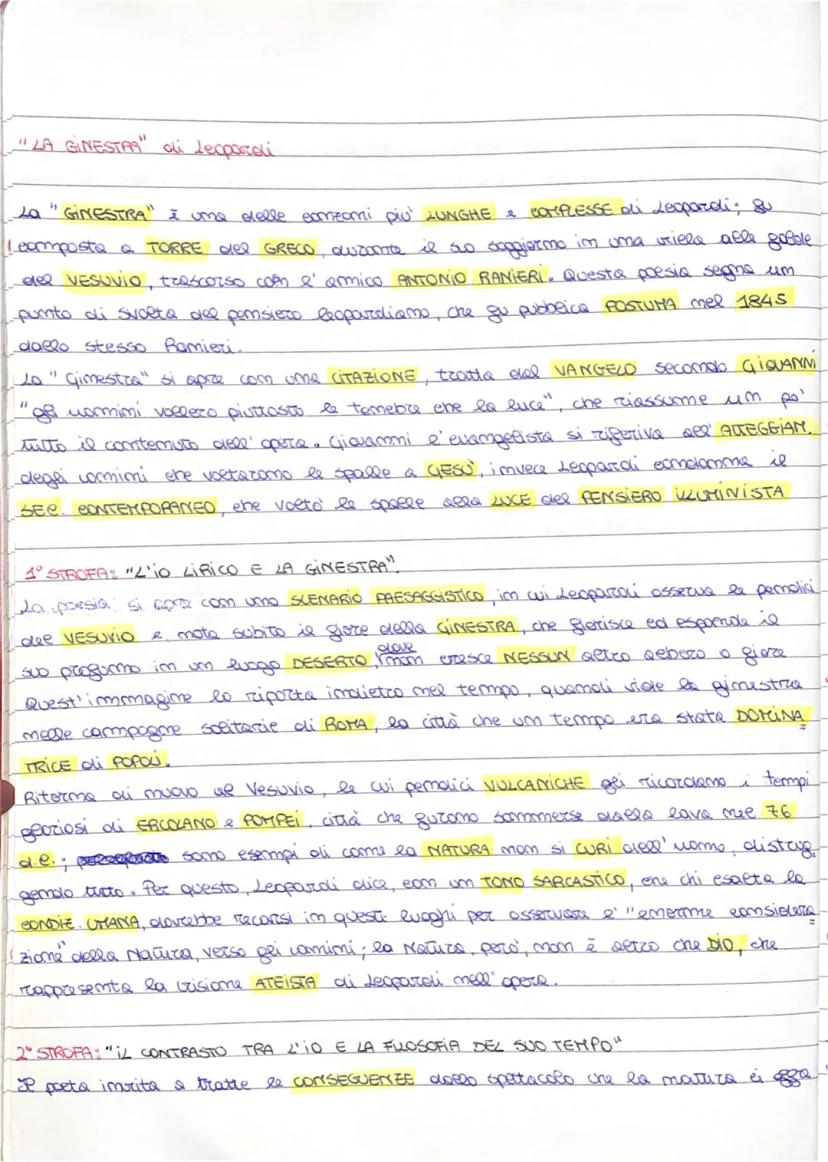 "LA GINESTRA" di Leopardi
La "GINESTRA" è una delle canzoni più LUNGHE e COMPLESSE di Leopardi; fu
composta a TORRE del GRECO, durante il suo soggiorno in una villa alle falde
del VESUVIO, trascorso con l'amico ANTONIO RANIERI. Questa poesia segna un
punto di svolta del pensiero leopardiano, che fu pubblica POSTUMA nel 1845
dallo stesso Ranieri.
La "Ginestra" si apre con una CITAZIONE, tratta dal VANGELO secondo GIOVANNI
"gli uomini vollero piuttosto le tenebre che la luce", che riassume un po'
tutto il contenuto dell'opera. Giovanni l'evangelista si riferiva all'ATTEGGIAM.
degli uomini che voltarono le spalle a GESÙ, invece Leopardi condanna il
SEC. CONTEMPORANEO, che voltò le spalle alla LUCE del PENSIERO ILLUMINISTA
1° STROFA: "L'IO LIRICO E LA GINESTRA".
La poesia si apre con uno SCENARIO PAESAGGISTICO, in cui Leopardi osserva le pendici
del VESUVIO e nota subito il fiore della GINESTRA, che fiorisce ed espande il
suo profumo in un luogo DESERTO, dove non cresce NESSUN altro albero o fiore
Quest'immagine lo riporta indietro nel tempo, quandi vide la ginestra
nelle campagne solitarie di ROMA, la città che un tempo era stata DOMINA
TRICE di POPOLI.
Ritorna di nuovo al Vesuvio, le cui pendici VULCANICHE gli ricordano i tempi
gloriosi di ERCOLANO e POMPEI, città che furono sommerse dalla lava nel 76
d.C.; sono esempi di come la NATURA non si CURI dell'uomo, distrug-
gendo tutto. Per questo, Leopardi dice, con un TONO SARCASTICO, che chi esalta la
CONDIZ. UMANA, dovrebbe recarsi in questi luoghi per osservare l'"enorme considera
zione" della Natura, verso gli uomini; la Natura, però, non è altro che DIO, che
rappresenta la visione ATEISTA di Leopardi nell'opera.
2° STROFA: "IL CONTRASTO TRA L'IO E LA FILOSOFIA DEL SUO TEMPO"
Il poeta invita a trarre le CONSEGUENZE dallo spettacolo che la natura ci